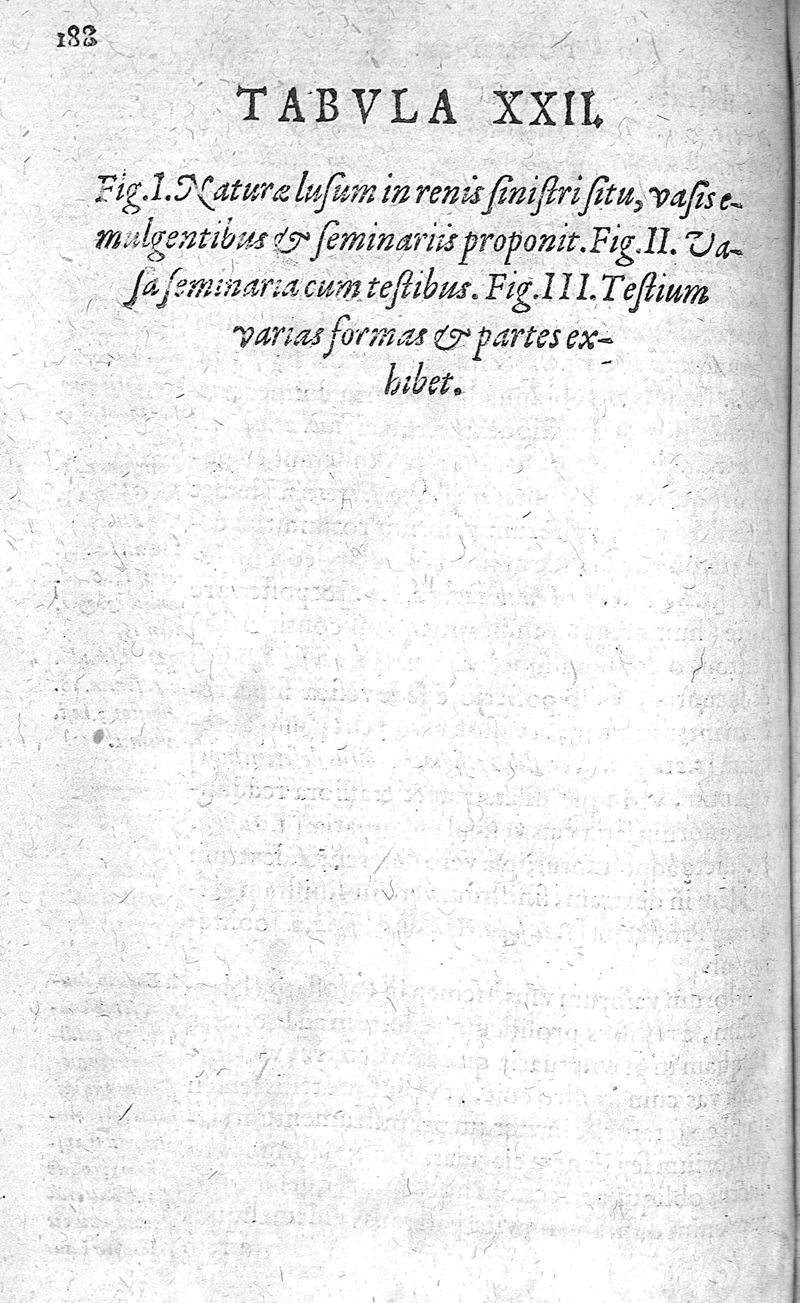 188
TABVLA XXII.
Fig. I. Naturæ lusum in renis sinistri situ, vasis e-
mulgentibus & seminariis proponit. Fig. II. Va-
sa seminaria cum testibus. Fig. III. Testium
varias formas & partes ex-
hibet.